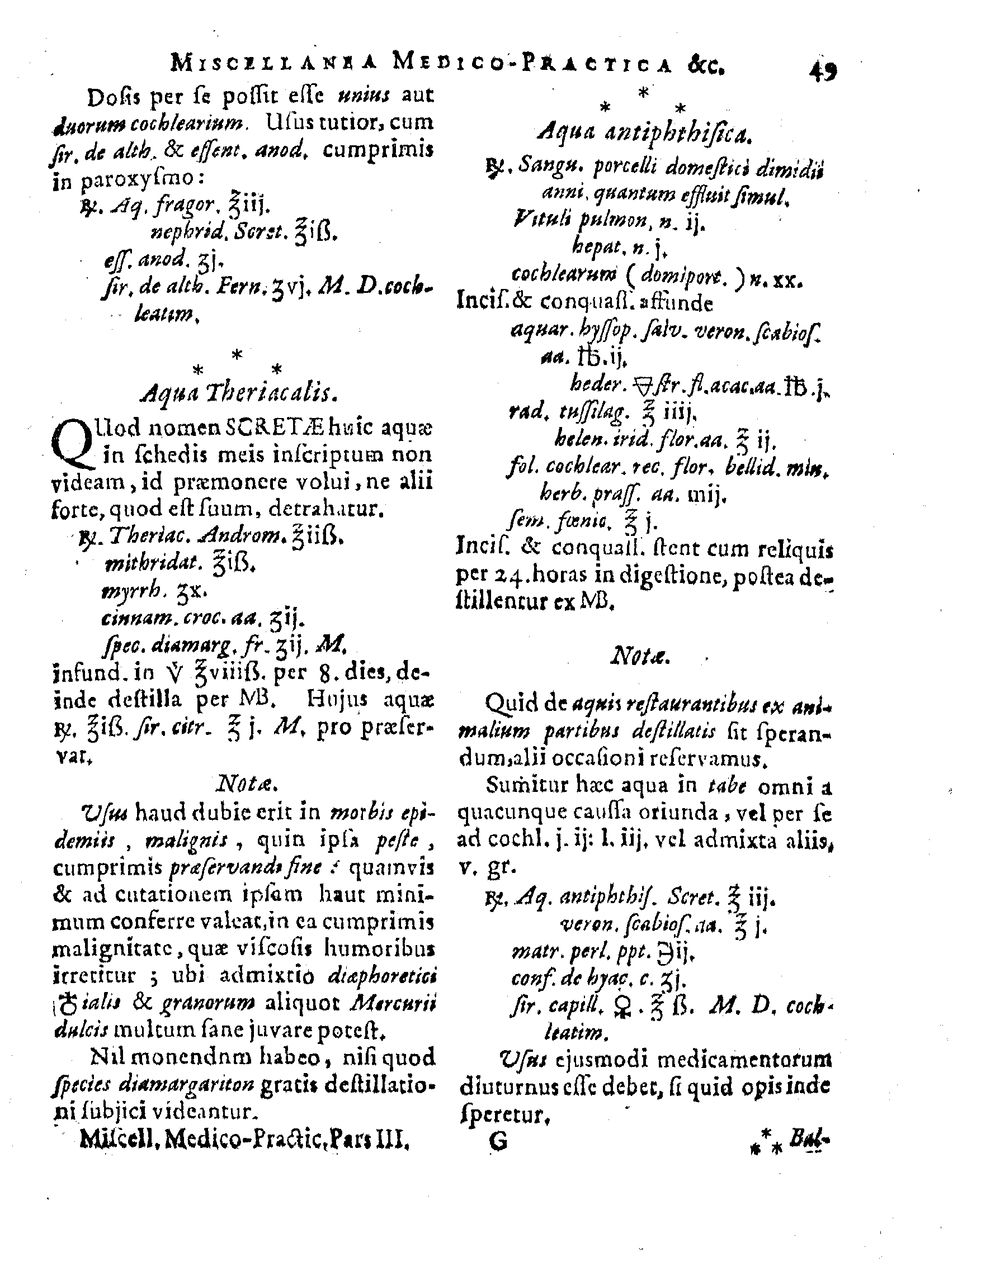 MISCELLANEA MEDICO-PRACTICA &c. 49
Dosis per se possit esse unius aut
duorum cochlearium. Usus tutior, cum
sir. de alth. & essent. anod. cumprimis
in paroxysmo:
℞. Aq. fragor. ℥iij.
nephrid. Scret. ℥iß.
ess. anod. ʒj.
sir. de alth. Fern. ʒvj. M. D. coch-
leatim.
* * *
Aqua Theriacalis.
QUod nomen SCRETÆ huic aquæ
in schedis meis inscriptum non
videam, id præmonere volui, ne alii
forte, quod est suum, detrahatur.
℞. Theriac. Androm. ℥iiß.
mithridat. ℥iß.
myrrh. ʒx.
cinnam. croc. aa. ʒij.
spec. diamarg. fr. ʒij. M.
infund. in V ℥viiiß. per 8. dies, de-
inde destilla per MB. Hujus aquæ
℞. ℥iß. sir. citr. ℥ j. M. pro præser-
vat.
Notæ.
Usus haud dubie erit in morbis epi-
demiis, malignis, quin ipsa peste,
cumprimis præservandi fine: quamvis
& ad curationem ipsam haut mini-
mum conferre valeat, in ea cumprimis
malignitate, quæ viscosis humoribus
irretitur; ubi admixtio diaphoretici
♃ialis & granorum aliquot Mercurii
dulcis multum sane juvare potest.
Nil monendnm habeo, nisi quod
species diamargariton gratis destillatio-
ni subjici videantur.
Miscell. Medico-Practic. Pars III.
* * *
Aqua antiphthisica.
℞. Sangu. porcelli domestici dimidii
anni, quantum effluit simul.
Vituli pulmon. n. ij.
hepat. n. j.
cochlearum (domiport.) n. xx.
Incis. & conquass. affunde
aquar. hyssop. salv. veron. scabios.
aa. ℔.ij.
heder. 🜃str. fl. acac. aa. ℔.j.
rad. tussilag. ℥ iiij.
helen. irid. flor. aa. ℥ ij.
fol. cochlear. rec. flor. bellid. min.
herb. prass. aa. mij.
sem. fœnic. ℥ j.
Incis. & conquass. stent cum reliquis
per 24. horas in digestione, postea de-
stillentur ex MB.
Notæ.
Quid de aquis restaurantibus ex ani-
malium partibus destillatis sit speran-
dum, alii occasioni reservamus.
Sumitur hæc aqua in tabe omni a
quacunque caussa oriunda, vel per se
ad cochl. j. ij: l. iij, vel admixta aliis,
v. gr.
℞. Aq. antiphthis. Scret. ℥ iij.
veron. scabios. aa. ℥ j.
matr. perl. ppt. ℈ij.
conf. de hyac. c. ʒj.
sir. capill. ♀. ℥ ß. M. D. coch-
leatim.
Usus ejusmodi medicamentorum
diuturnus esse debet, si quid opis inde
speretur.
G * * * Bal-